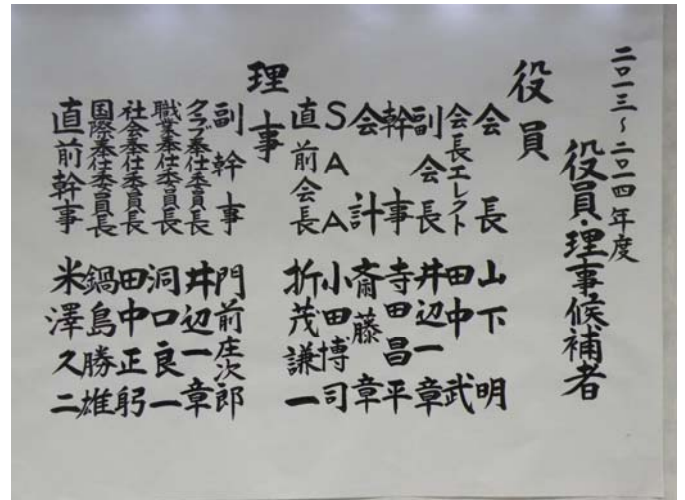 二〇一三～二〇一四年度
役員・理事候補者
役員
会長 山下明
会長エレクト 田中武
副会長 井辺一章
幹事 寺田昌平
会計 齋藤章
SAA 小田博司
直前会長 折茂謙一
理事
副幹事 門前庄次郎
クラブ奉仕委員長 井辺一章
職業奉仕委員長 洞口良一
社会奉仕委員長 田中正躬
国際奉仕委員長 鍋島勝雄
直前幹事 米澤久二